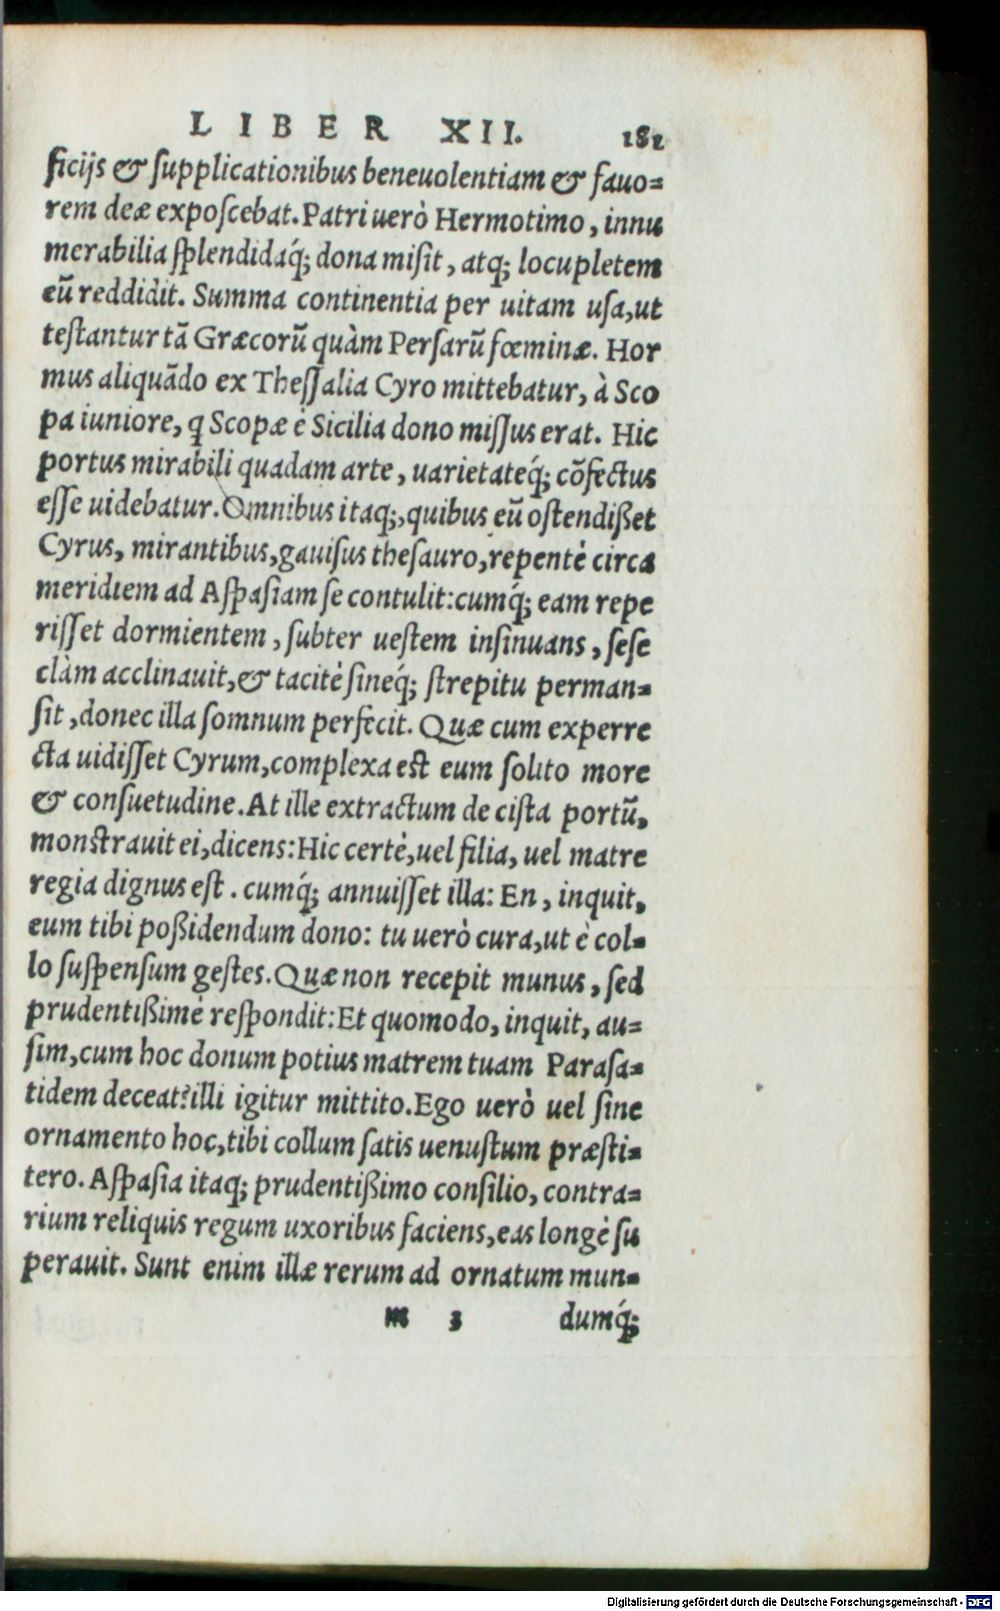 LIBER XII. 181
ficijs & ſupplicationibus beneuolentiam & fauo=
rem deæ expoſcebat. Patri uerò Hermotimo, innu
merabilia ſplendidaq́; dona miſit, atq; locupletem
eũ reddidit. Summa continentia per uitam uſa, ut
teſtantur tã Græcorũ quàm Perſarũ fœminæ. Hor
mus aliquãdo ex Theſſalia Cyro mittebatur, à Sco
pa iuniore, q Scopæ è Sicilia dono miſſus erat. Hic
portus mirabili quadam arte, uarietateq́; cõfectus
eſſe uidebatur. Omnibus itaq;, quibus eũ oſtendiſset
Cyrus, mirantibus, gauiſus theſauro, repentè circa
meridiem ad Aſpaſiam ſe contulit: cumq́; eam repe
riſſet dormientem, ſubter ueſtem inſinuans, ſeſe
clàm acclinauit, & tacitè ſineq́; ſtrepitu perman=
ſit, donec illa ſomnum perfecit. Quæ cum experre
cta uidiſſet Cyrum, complexa est eum ſolito more
& conſuetudine. At ille extractum de ciſta portũ,
monstrauit ei, dicens: Hic certè, uel filia, uel matre
regia dignus est. cumq́; annuiſſet illa: En, inquit,
eum tibi poßidendum dono: tu uerò cura, ut è col=
lo ſuſpenſum geſtes. Quæ non recepit munus, ſed
prudentißimè reſpondit: Et quomodo, inquit, au=
ſim, cum hoc donum potius matrem tuam Paraſa=
tidem deceat? illi igitur mittito. Ego uerò uel ſine
ornamento hoc, tibi collum ſatis uenuſtum præſti=
tero. Aſpaſia itaq; prudentißimo conſilio, contra=
rium reliquis regum uxoribus faciens, eas longè ſu
perauit. Sunt enim illæ rerum ad ornatum mun=
m 3 dumq́;
Digitalisierung gefördert durch die Deutsche Forschungsgemeinschaft - DFG